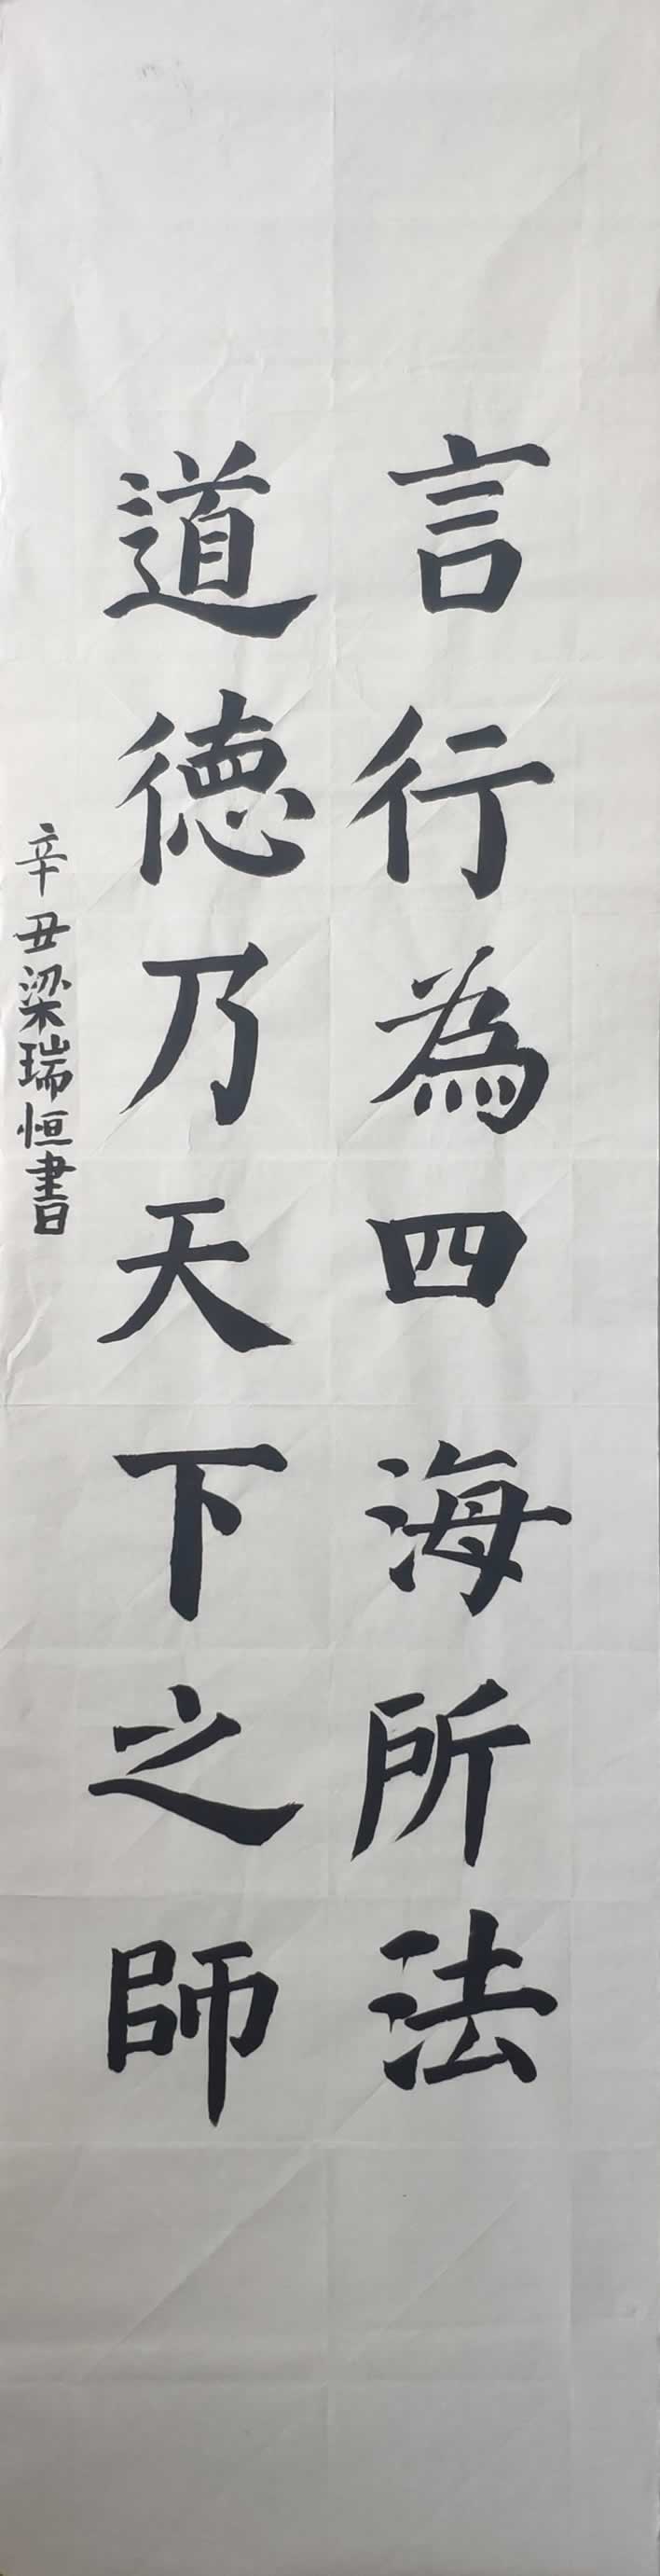 言行為四海所法
道德乃天下之師
辛丑梁瑞恒書